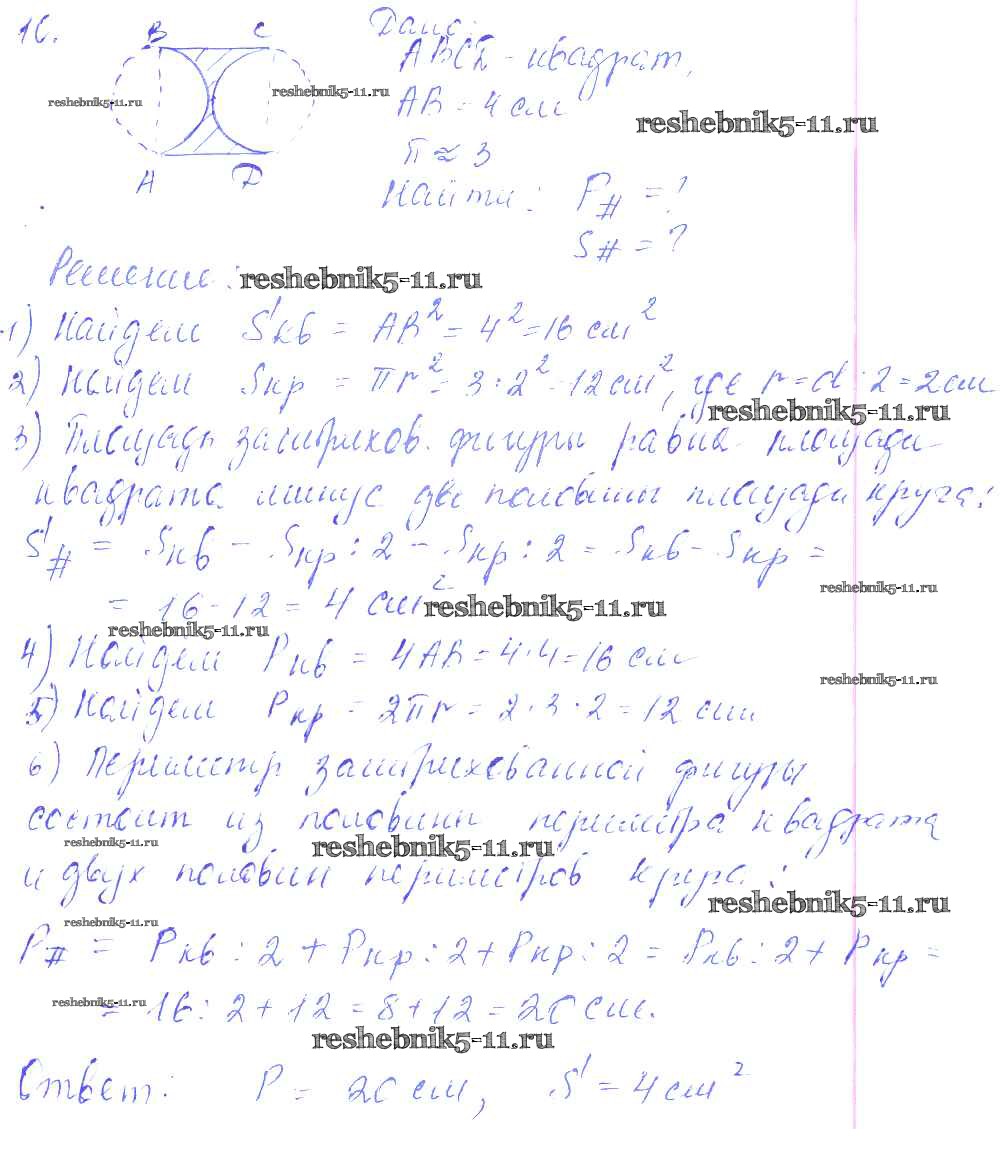 16.
B C
A D
Дано:
ABCD - квадрат,
AB = 4 см
π ≈ 3
Найти: P# = ?
S# = ?
reshebnik5-11.ru
reshebnik5-11.ru
reshebnik5-11.ru
Решение: reshebnik5-11.ru
1) Найдем Sкв = AB² = 4² = 16 см²
2) Найдем Sкр = πr² = 3 · 2² = 12 см², где r = d : 2 = 2 см
reshebnik5-11.ru
3) Площадь заштрихов. фигуры равна площади
квадрата минус две половины площади круга:
S# = Sкв - Sкр : 2 - Sкр : 2 = Sкв - Sкр =
reshebnik5-11.ru
= 16 - 12 = 4 см² reshebnik5-11.ru
reshebnik5-11.ru
4) Найдем Pкв = 4AB = 4 · 4 = 16 см
reshebnik5-11.ru
5) Найдем Pкр = 2πr = 2 · 3 · 2 = 12 см.
6) Периметр заштрихованной фигуры
состоит из половины периметра квадрата
reshebnik5-11.ru reshebnik5-11.ru
и двух половин периметров круга:
reshebnik5-11.ru
reshebnik5-11.ru
P# = Pкв : 2 + Pкр : 2 + Pкр : 2 = Pкв : 2 + Pкр =
reshebnik5-11.ru
= 16 : 2 + 12 = 8 + 12 = 20 см.
reshebnik5-11.ru
Ответ: P = 20 см, S = 4 см²